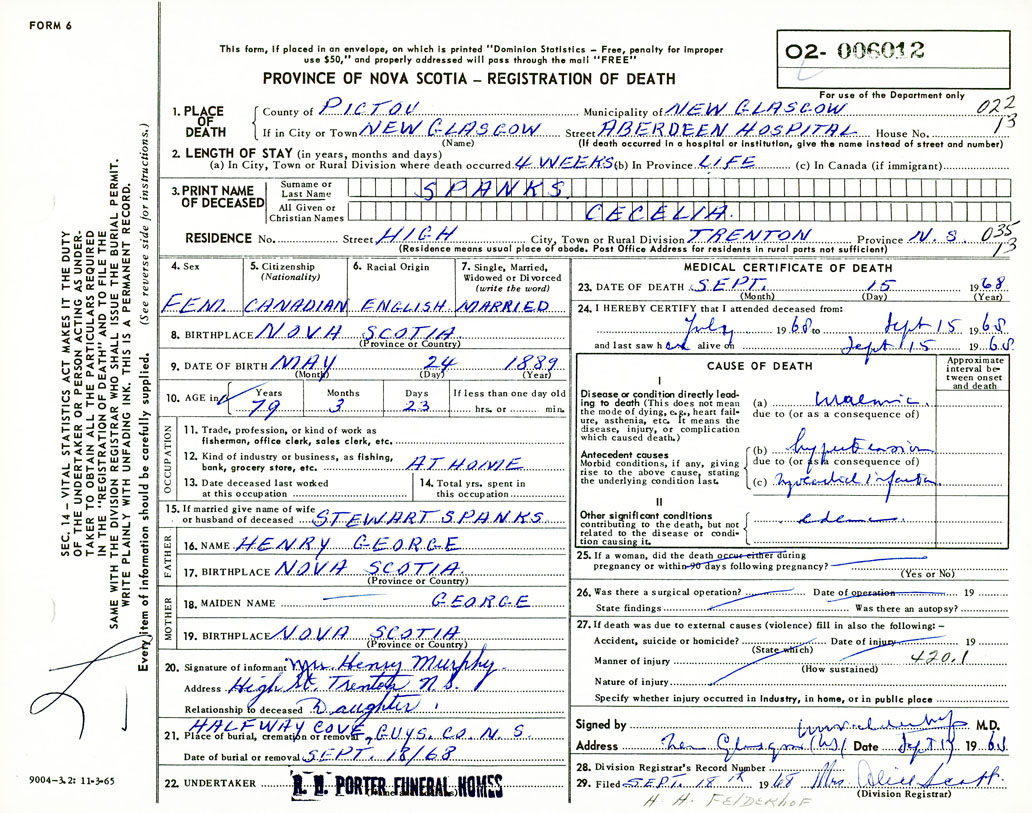 FORM 6
This form, if placed in an envelope, on which is printed "Dominion Statistics – Free, penalty for improper
use $50," and properly addressed will pass through the mail "FREE"
O2- 006012
PROVINCE OF NOVA SCOTIA – REGISTRATION OF DEATH
For use of the Department only
1. PLACE OF DEATH County of PICTOU Municipality of NEW GLASGOW 022
If in City or Town NEW GLASGOW Street ABERDEEN HOSPITAL House No. 13
(Name) (If death occurred in a hospital or institution, give the name instead of street and number)
2. LENGTH OF STAY (in years, months and days)
(a) In City, Town or Rural Division where death occurred 4 WEEKS (b) In Province LIFE (c) In Canada (if immigrant)
3. PRINT NAME OF DECEASED Surname or Last Name SPANKS
All Given or Christian Names CECELIA
RESIDENCE No. Street HIGH City, Town or Rural Division TRENTON Province N. S. 035
(Residence means usual place of abode. Post Office Address for residents in rural parts not sufficient) 13
4. Sex 5. Citizenship (Nationality) 6. Racial Origin 7. Single, Married, Widowed or Divorced (write the word)
FEM. CANADIAN ENGLISH MARRIED
8. BIRTHPLACE NOVA SCOTIA
(Province or Country)
9. DATE OF BIRTH MAY 24 1889
(Month) (Day) (Year)
10. AGE in Years Months Days If less than one day old
79 3 23 hrs. or min.
OCCUPATION
11. Trade, profession, or kind of work as
fisherman, office clerk, sales clerk, etc.
12. Kind of industry or business, as fishing,
bank, grocery store, etc. AT HOME
13. Date deceased last worked
at this occupation
14. Total yrs. spent in
this occupation
15. If married give name of wife
or husband of deceased STEWART SPANKS
FATHER
16. NAME HENRY GEORGE
17. BIRTHPLACE NOVA SCOTIA
(Province or Country)
MOTHER
18. MAIDEN NAME GEORGE
19. BIRTHPLACE NOVA SCOTIA
(Province or Country)
20. Signature of informant Mrs. Henry Murphy
Address High St. Trenton N.S.
Relationship to deceased Daughter
HALFWAY COVE, GUYS. CO. N. S.
21. Place of burial, cremation or removal
Date of burial or removal SEPT. 18/68
22. UNDERTAKER PORTER FUNERAL HOMES
MEDICAL CERTIFICATE OF DEATH
23. DATE OF DEATH SEPT. 15 1968
(Month) (Day) (Year)
24. I HEREBY CERTIFY that I attended deceased from:
July 1968 to Sept 15 1968
and last saw her alive on Sept 15 1968
CAUSE OF DEATH
Approximate interval between onset and death
I
Disease or condition directly leading
to death (This does not mean
the mode of dying, e.g., heart failure,
asthenia, etc. It means the
disease, injury, or complication
which caused death.)
(a) Uraemic
due to (or as a consequence of)
Antecedent causes
Morbid conditions, if any, giving
rise to the above cause, stating
the underlying condition last.
(b) hypertension
due to (or as a consequence of)
(c) myocardial infarction
II
Other significant conditions
contributing to the death, but not
related to the disease or condition
causing it.
edema
25. If a woman, did the death occur either during
pregnancy or within 90 days following pregnancy?
(Yes or No)
26. Was there a surgical operation? Date of operation 19
State findings Was there an autopsy?
27. If death was due to external causes (violence) fill in also the following: –
Accident, suicide or homicide? Date of injury 19
(State which)
Manner of injury 420.1
(How sustained)
Nature of injury
Specify whether injury occurred in Industry, in home, or in public place
Signed by M.D.
Address New Glasgow Date Sept 17 1968
28. Division Registrar's Record Number
29. Filed SEPT. 18th 1968 Mrs. Alice Scott
(Division Registrar)
H. H. FELDERHOF
SEC. 14 – VITAL STATISTICS ACT MAKES IT THE DUTY
OF THE UNDERTAKER OR PERSON ACTING AS UNDERTAKER
TO OBTAIN ALL THE PARTICULARS REQUIRED
IN THE "REGISTRATION OF DEATH" AND TO FILE THE
SAME WITH THE DIVISION REGISTRAR WHO SHALL ISSUE THE BURIAL PERMIT.
WRITE PLAINLY WITH UNFADING INK. THIS IS A PERMANENT RECORD.
Every item of information should be carefully supplied. (See reverse side for instructions.)
9004–3.2: 11-3-65